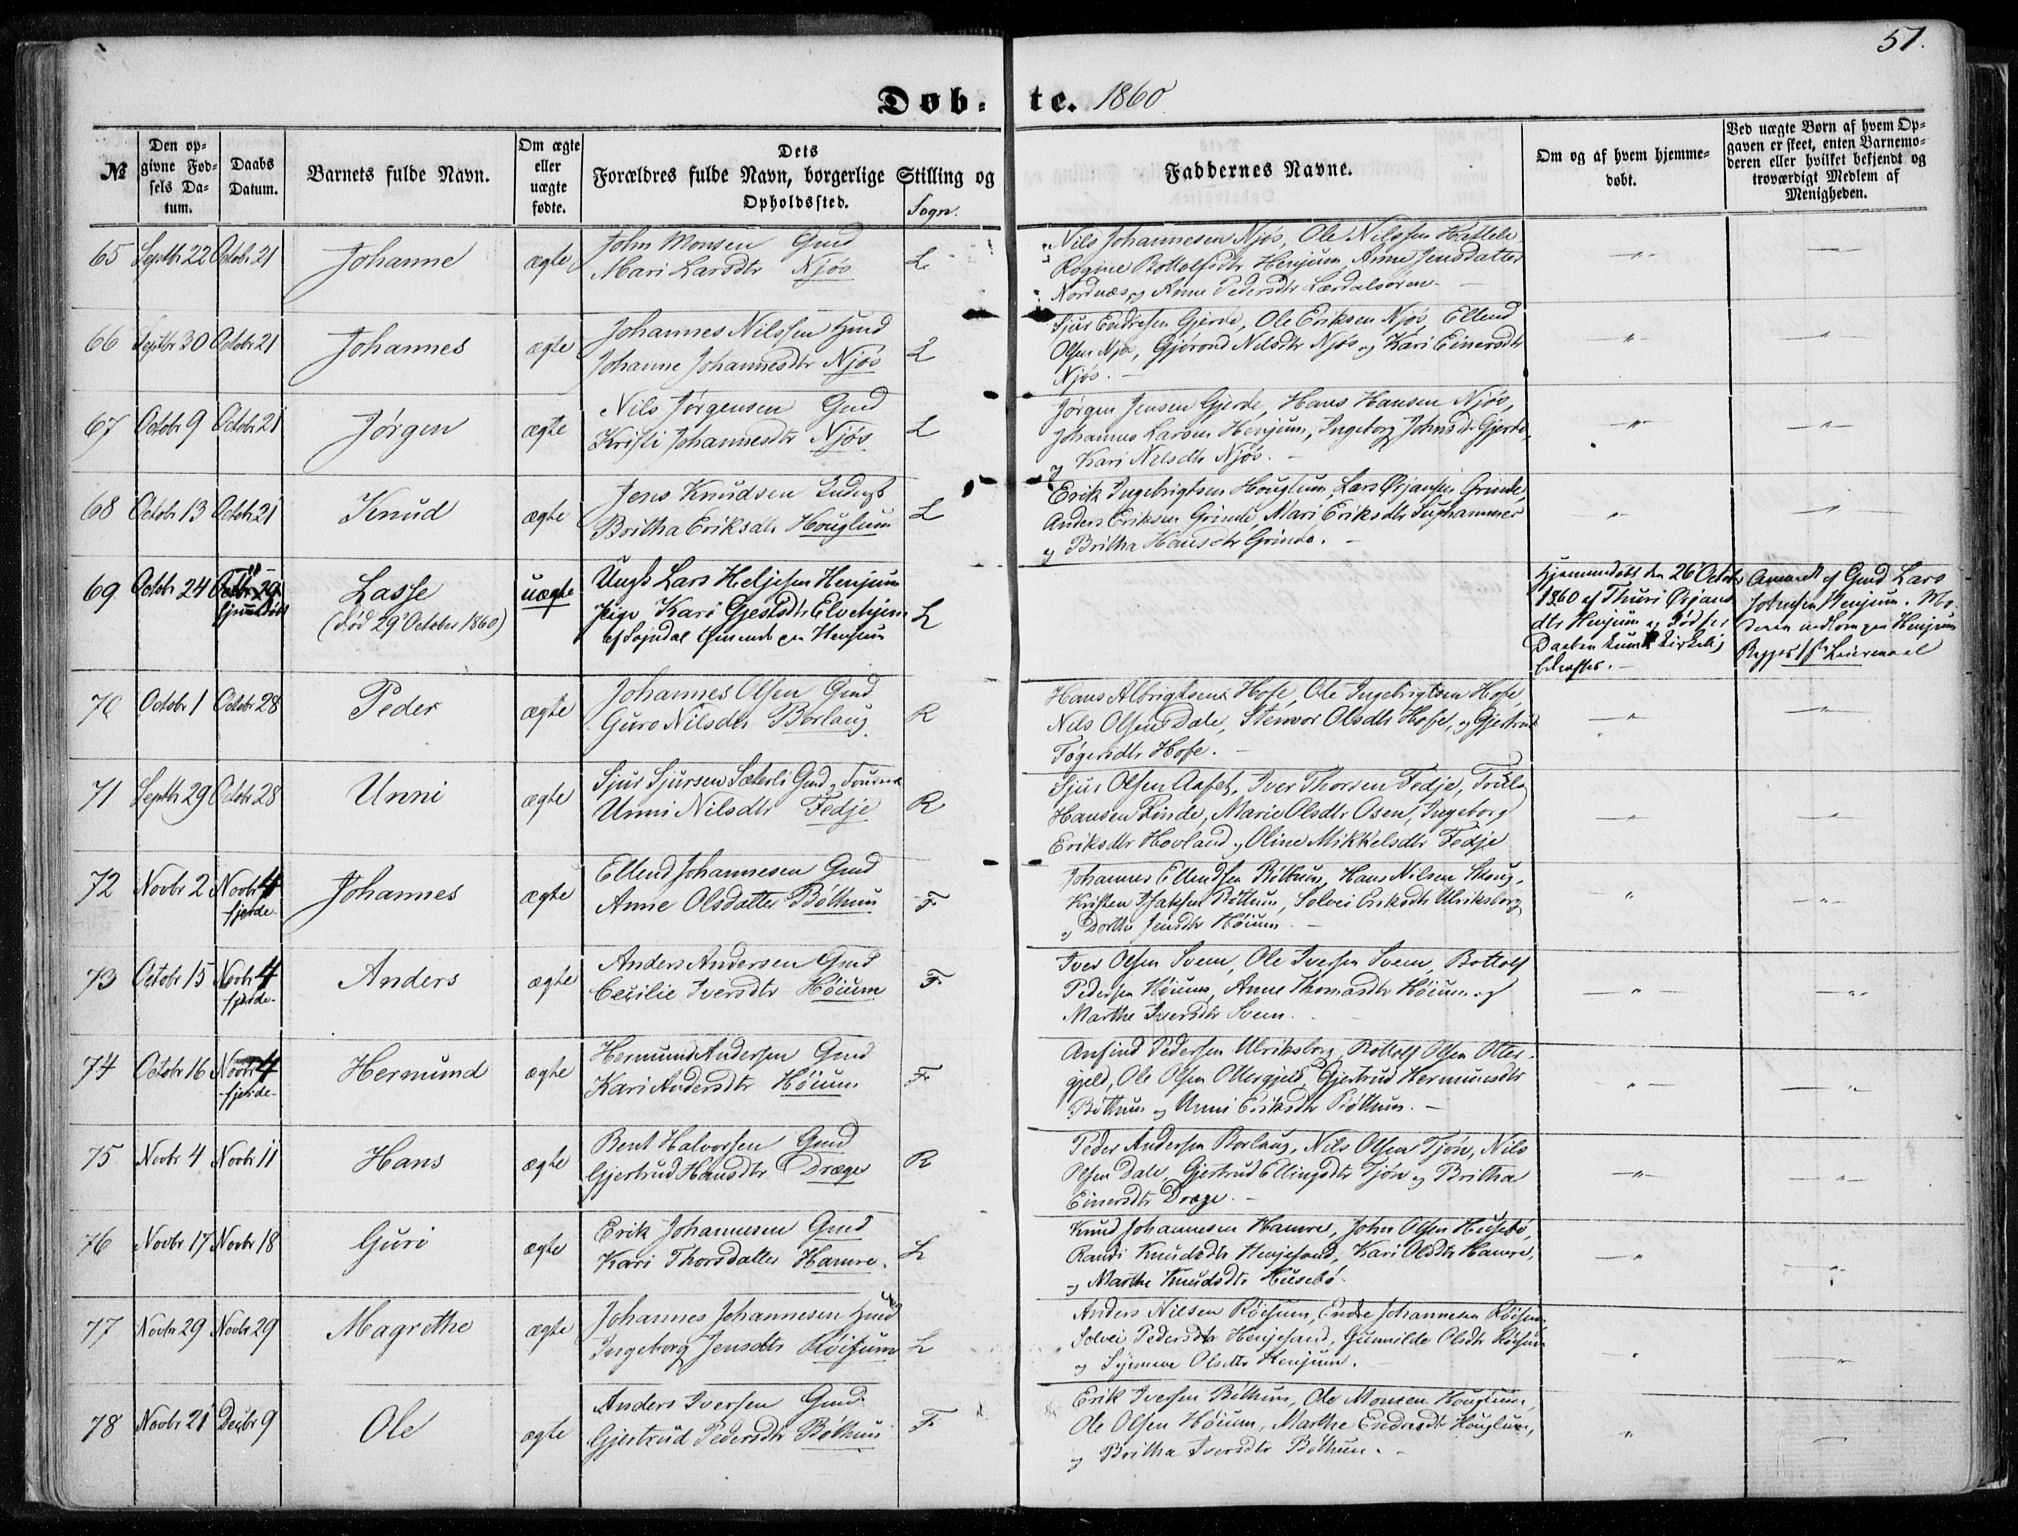 51.
Døb-te. 1860
№
Den opgivne Fødsels Datum.
Daabs Datum.
Barnets fulde Navn.
Om ægte eller uægte fødte.
Dets Forældres fulde Navn, borgerlige Stilling og Opholdssted.
Sogn.
Faddernes Navne.
Om og af hvem hjemmedøbt.
Ved uægte Børn af hvem Opgaven er skeet, enten Barnemoderen eller hvilket bekjendt og troværdigt Medlem af Menigheden.
65 Septbr 22 Octobr 21 Johanne ægte John Monsen Gmd L
Mari Larsdtr Njøs
Nils Johannesen Njøs, Ole Nilssen Hattele
Rogine Bottolfsdtr Henjum Anne Jensdatter
Nordnæs og Anne Pedersdtr Lærdalsøren
66 Septbr 30 Octobr 21 Johannes ægte Johannes Nilssen Hmd L
Johanne Johannesdtr Njøs
Sjur Endresen Gjerde, Ole Eriksen Njøs, Ellend
Olsen Njøs, Gjørond Nilsdtr Njøs og Kari Einersdtr
Njøs.
67 Octobr 9 Octobr 21 Jørgen ægte Nils Jørgensen Gmd L
Kristi Johannesdtr Njøs
Jørgen Jensen Gjerde, Hans Hansen Njøs,
Johannes Larsen Henjum, Ingeborg Johnsdtr Gjerde,
og Kari Nilsdtr Njøs.
68 Octobr 13 Octobr 21 Knud ægte Jens Knudsen L
Britha Eriksdtr Houglum
Erik Ingebrigtsen Houglum, Lars Ørjansen Grinde,
Anders Eriksen Grinde, Mari Eriksdtr Suphammer
og Britha Hansdtr Grinde.
69 Octobr 24 Octbr 29 Lasse uægte Ungk Lars Heljesen Henjum L
hjemmedøbt (død 29 October 1860) Pige Kari Gjestsdtr Elvehjem
af Sogndal
Hjemmedøbt den 26 Octobr
1860 af Thuri Ørjans
dtr Henjum og død før
Daaben kunde Kirkelig
bekræftes.
Anmeldt af Gmd Lars
Johnsen Henjum. Mo
deren Henjum
Leiermaal
70 Octobr 1 Octobr 28 Peder ægte Johannes Olsen Gmd R
Guro Nilsdtr Borlaug
Hans Albrigtsen Hofe, Ole Ingebrigtsen Hofe,
Nils Olsen Dale, Stenvor Olsdtr Hofe, og Gjertrud
Tøgersdtr Hofe.
71 Septbr 29 Octobr 28 Unni ægte Sjur Sjursen Sæterli Gmd R
Unni Nilsdtr Fedje
Sjur Olsen Aaset, Iver Thorsen Fedje, Truls
Hansen Linde, Marie Olsdtr Osen, Ingeborg
Eriksdtr Hovland og Oline Mikkelsdtr Fedje
72 Novbr 2 Novbr 4 Johannes ægte Ellend Johannesen Gmd F
fjerde Anne Olsdatter Bøthun
Johannes Ellendsen Bøthun, Hans Nilsen Skoug,
Kristen Isaksen Bøthun, Solvei Eriksdtr Ulriksborg
og Dorthe Jensdtr Høium
73 Octobr 15 Novbr 4 Anders ægte Anders Andersen Gmd F
fjerde Cecilie Iversdtr Høium
Iver Olsen Svein, Ole Iversen Svein, Bottolf
Pedersen Høium, Anne Thomasdtr Høium og
Marthe Iversdtr Svein.
74 Octobr 16 Novbr 4 Hermund ægte Hermund Andersen Gmd F
fjerde Kari Andersdtr Høium
Anfind Pedersen Ulriksborg, Bottolf Olsen Otter
gjeld, Ole Olsen Ottergjeld, Gjertrud Hermunsdtr
Bøthun og Unni Eriksdtr Bøthun.
75 Novbr 4 Novbr 11 Hans ægte Bent Halvorsen Gmd R
Gjertrud Hansdtr Dræge
Peder Andersen Borlaug, Nils Olsen Tjøn, Nils
Olsen Dale, Gjertrud Ellingsdtr Tjøn og Britha
Einersdtr Dræge.
76 Novbr 17 Novbr 18 Guri ægte Erik Johannesen Gmd L
Kari Thorsdatter Hamre.
Knud Johannesen Hamre, John Olsen Husebø,
Randi Knudsdtr Henjesand, Kari Olsdtr Hamre,
og Marthe Knudsdtr Husebø.
77 Novbr 29 Novbr 29 Magrethe ægte Johannes Johannesen Hmd L
Ingeborg Jensdtr Røisum
Anders Nilsen Røisum, Endre Johannesen Røisum
Solvei Pedersdtr Henjesand, Gunnilde Olsdtr Røisum
og Synneve Olsdtr Henjum.
78 Novbr 21 Decbr 9 Ole ægte Anders Iversen Gmd F
Gjertrud Pedersdtr Bøthun
Erik Iversen Bøthun, Ole Monsen Houglum,
Ole Olsen Høium, Marthe Endresdtr Houglum,
og Britha Iversdtr Bøthun.